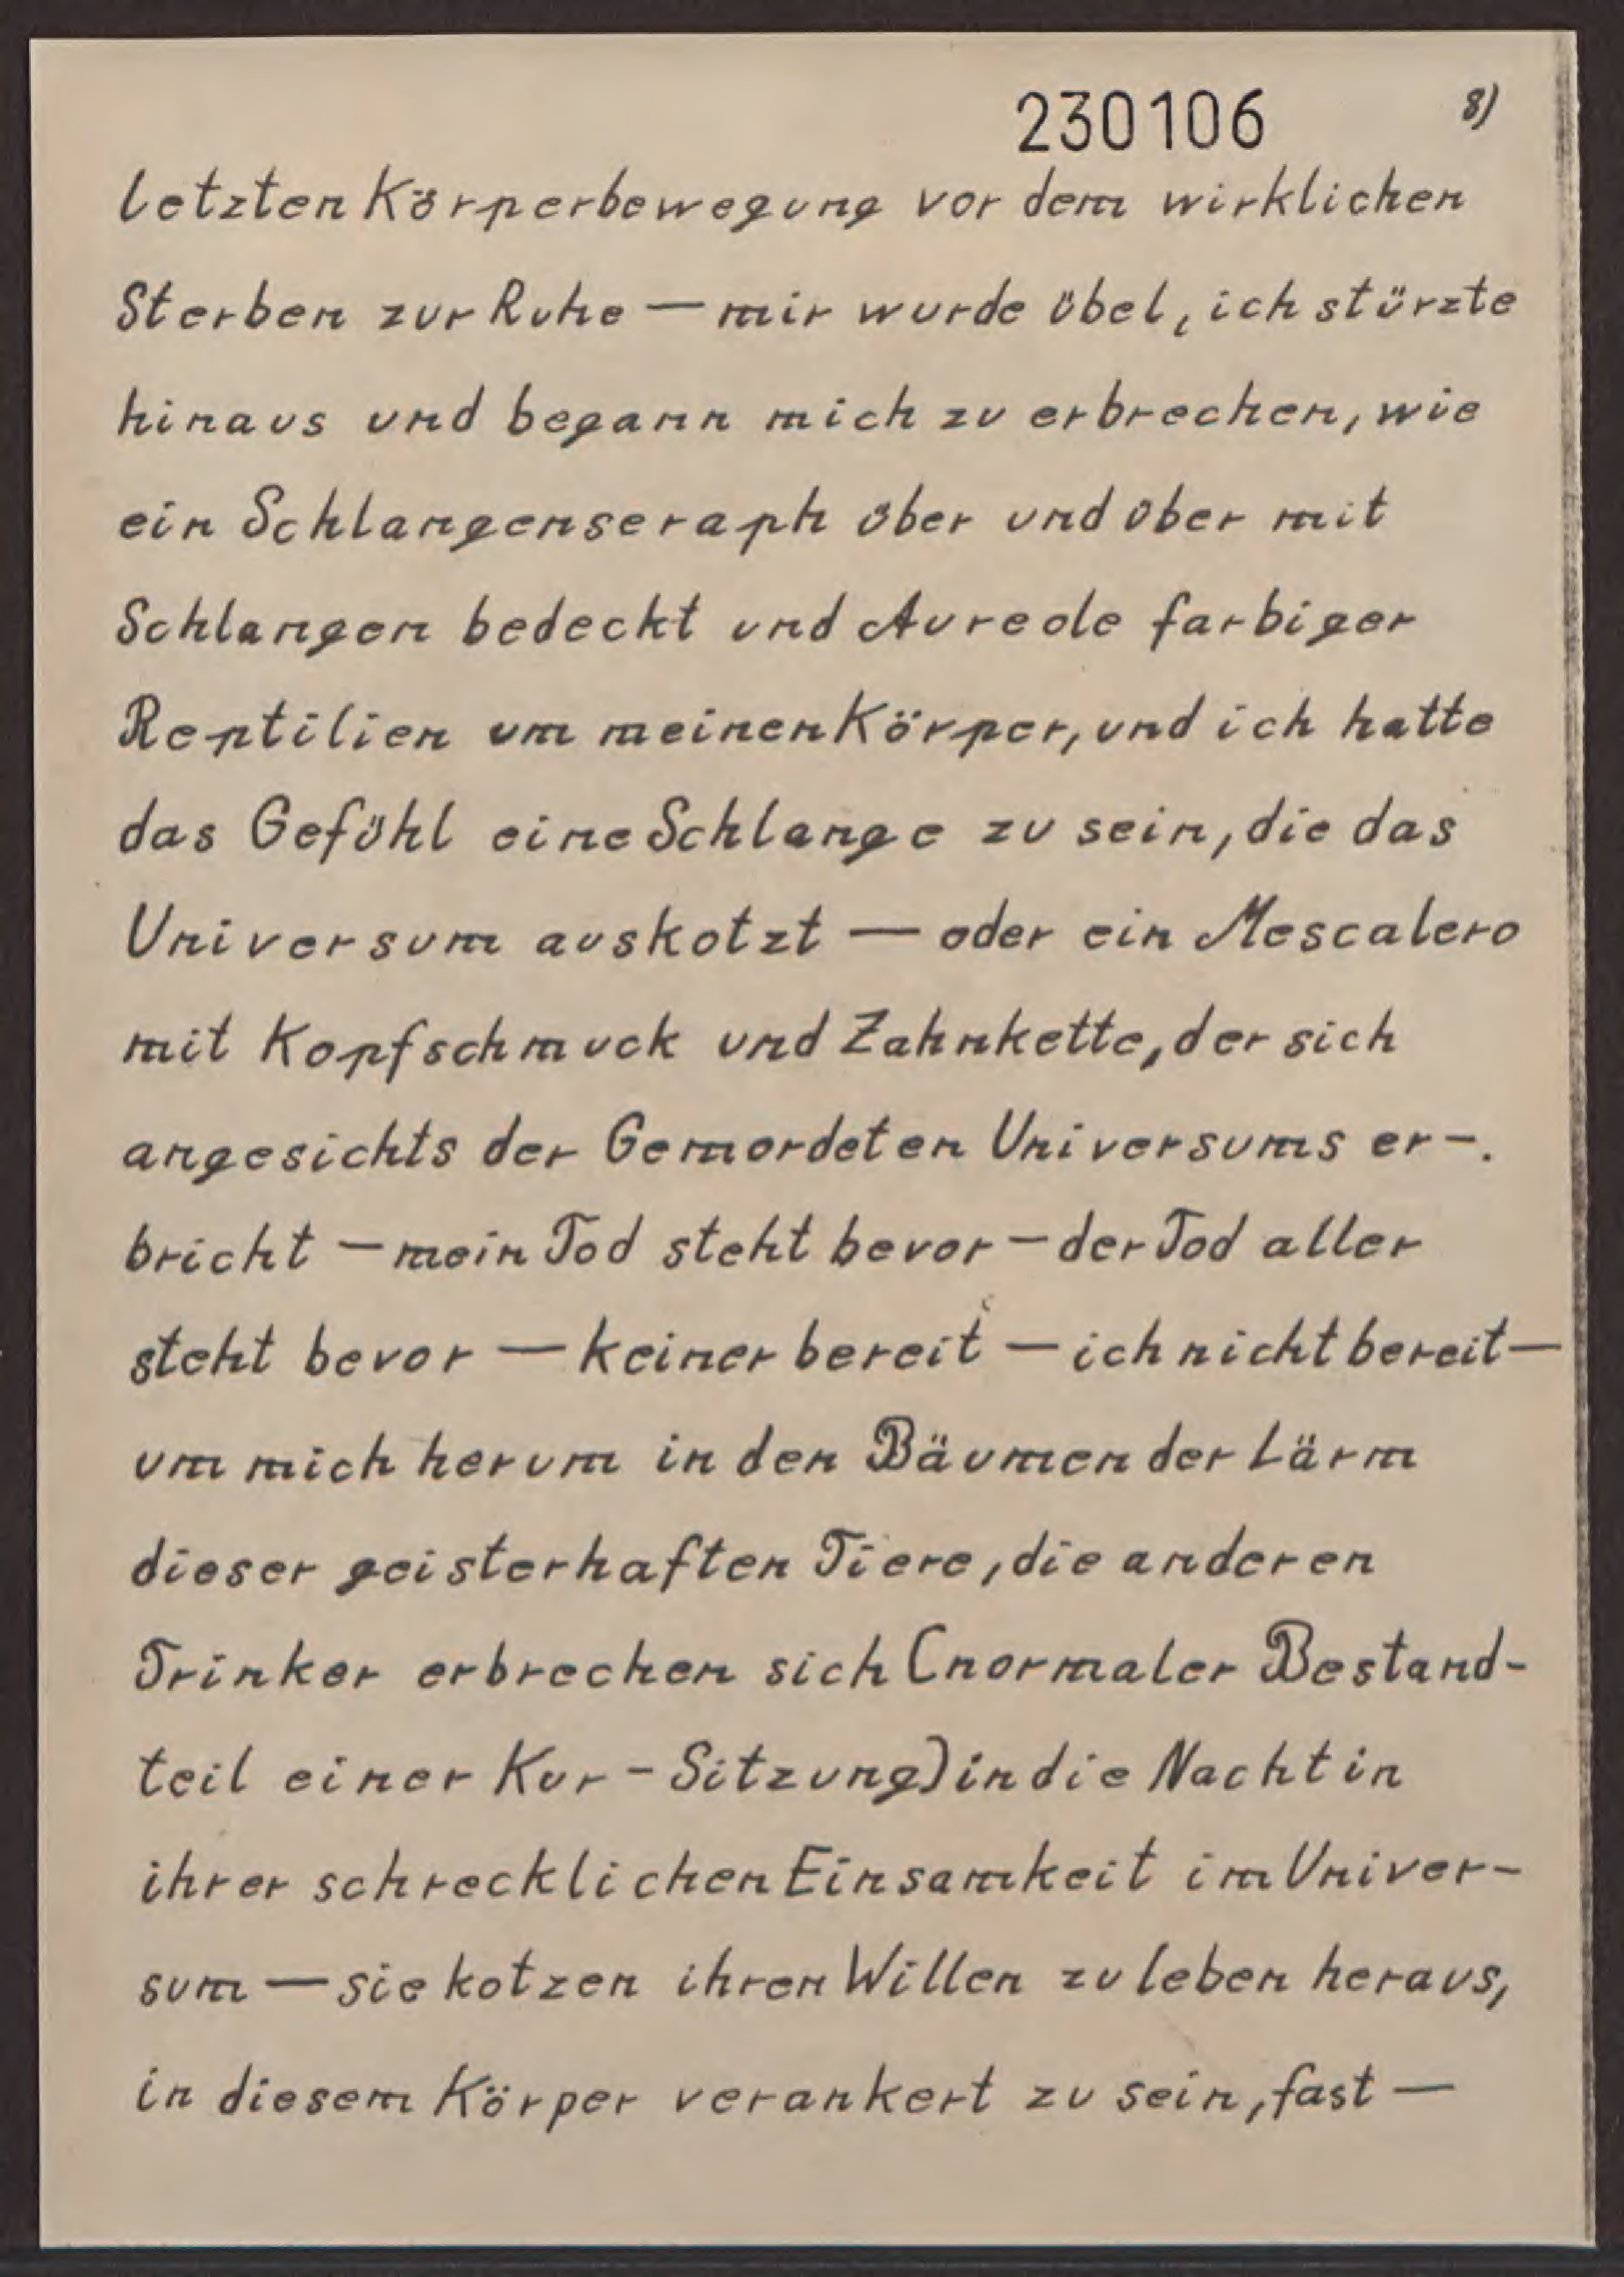 230106 8)
letzten Körperbewegung vor dem wirklichen
Sterben zur Ruhe — mir wurde übel, ich stürzte
hinaus und begann mich zu erbrechen, wie
ein Schlangenseraph über und über mit
Schlangen bedeckt und Aureole farbiger
Reptilien um meinen Körper, und ich hatte
das Gefühl eine Schlange zu sein, die das
Universum auskotzt — oder ein Mescalero
mit Kopfschmuck und Zahnkette, der sich
angesichts der Gemordeten Universums er-.
bricht — mein Tod steht bevor — der Tod aller
steht bevor — keiner bereit — ich nicht bereit —
um mich herum in den Bäumen der Lärm
dieser geisterhaften Tiere, die anderen
Trinker erbrechen sich (normaler Bestand-
teil einer Kur-Sitzung) in die Nacht in
ihrer schrecklichen Einsamkeit im Univer-
sum — sie kotzen ihren Willen zu leben heraus,
in diesem Körper verankert zu sein, fast —